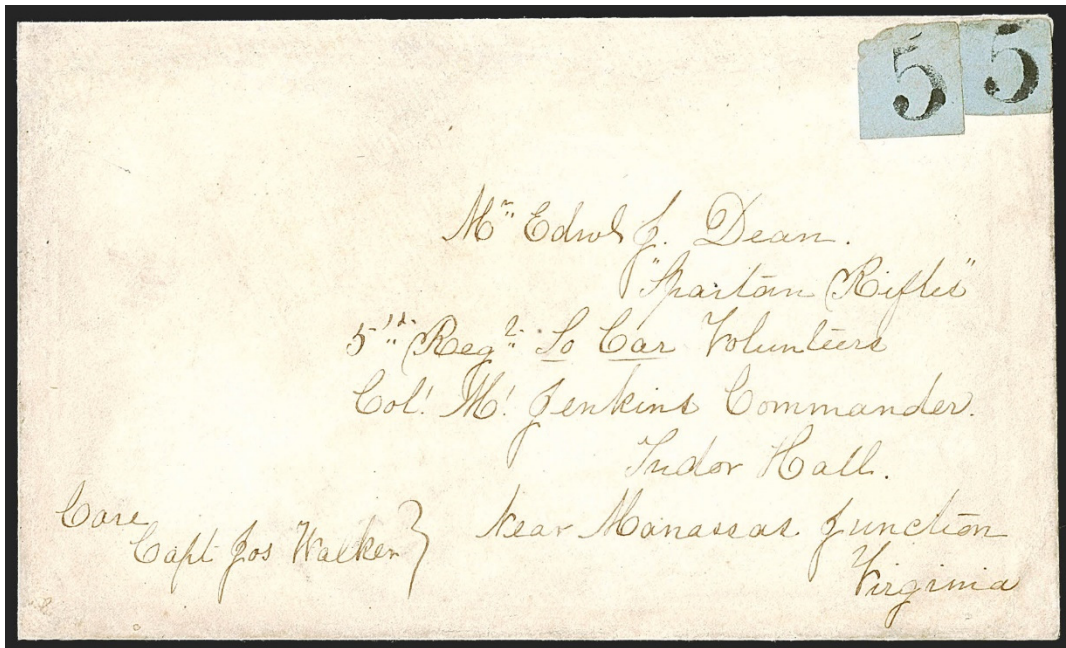 5 5
Mr. Edwd J. Dean.
"Spartan Rifles"
5th Regt. So Car Volunteers
Col. M. Jenkins Commander.
Tudor Hall.
Near Manassas Junction
Virginia
Care
Capt Jos Walker }